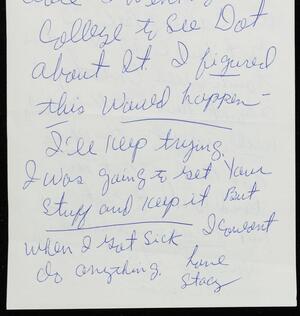 College to See Dot
about It. I figured
this Would happen -
I'll Keep trying.
I was going to get Your
Stuff and Keep it But
when I got Sick I couldn't
do anything. Love
Stacy